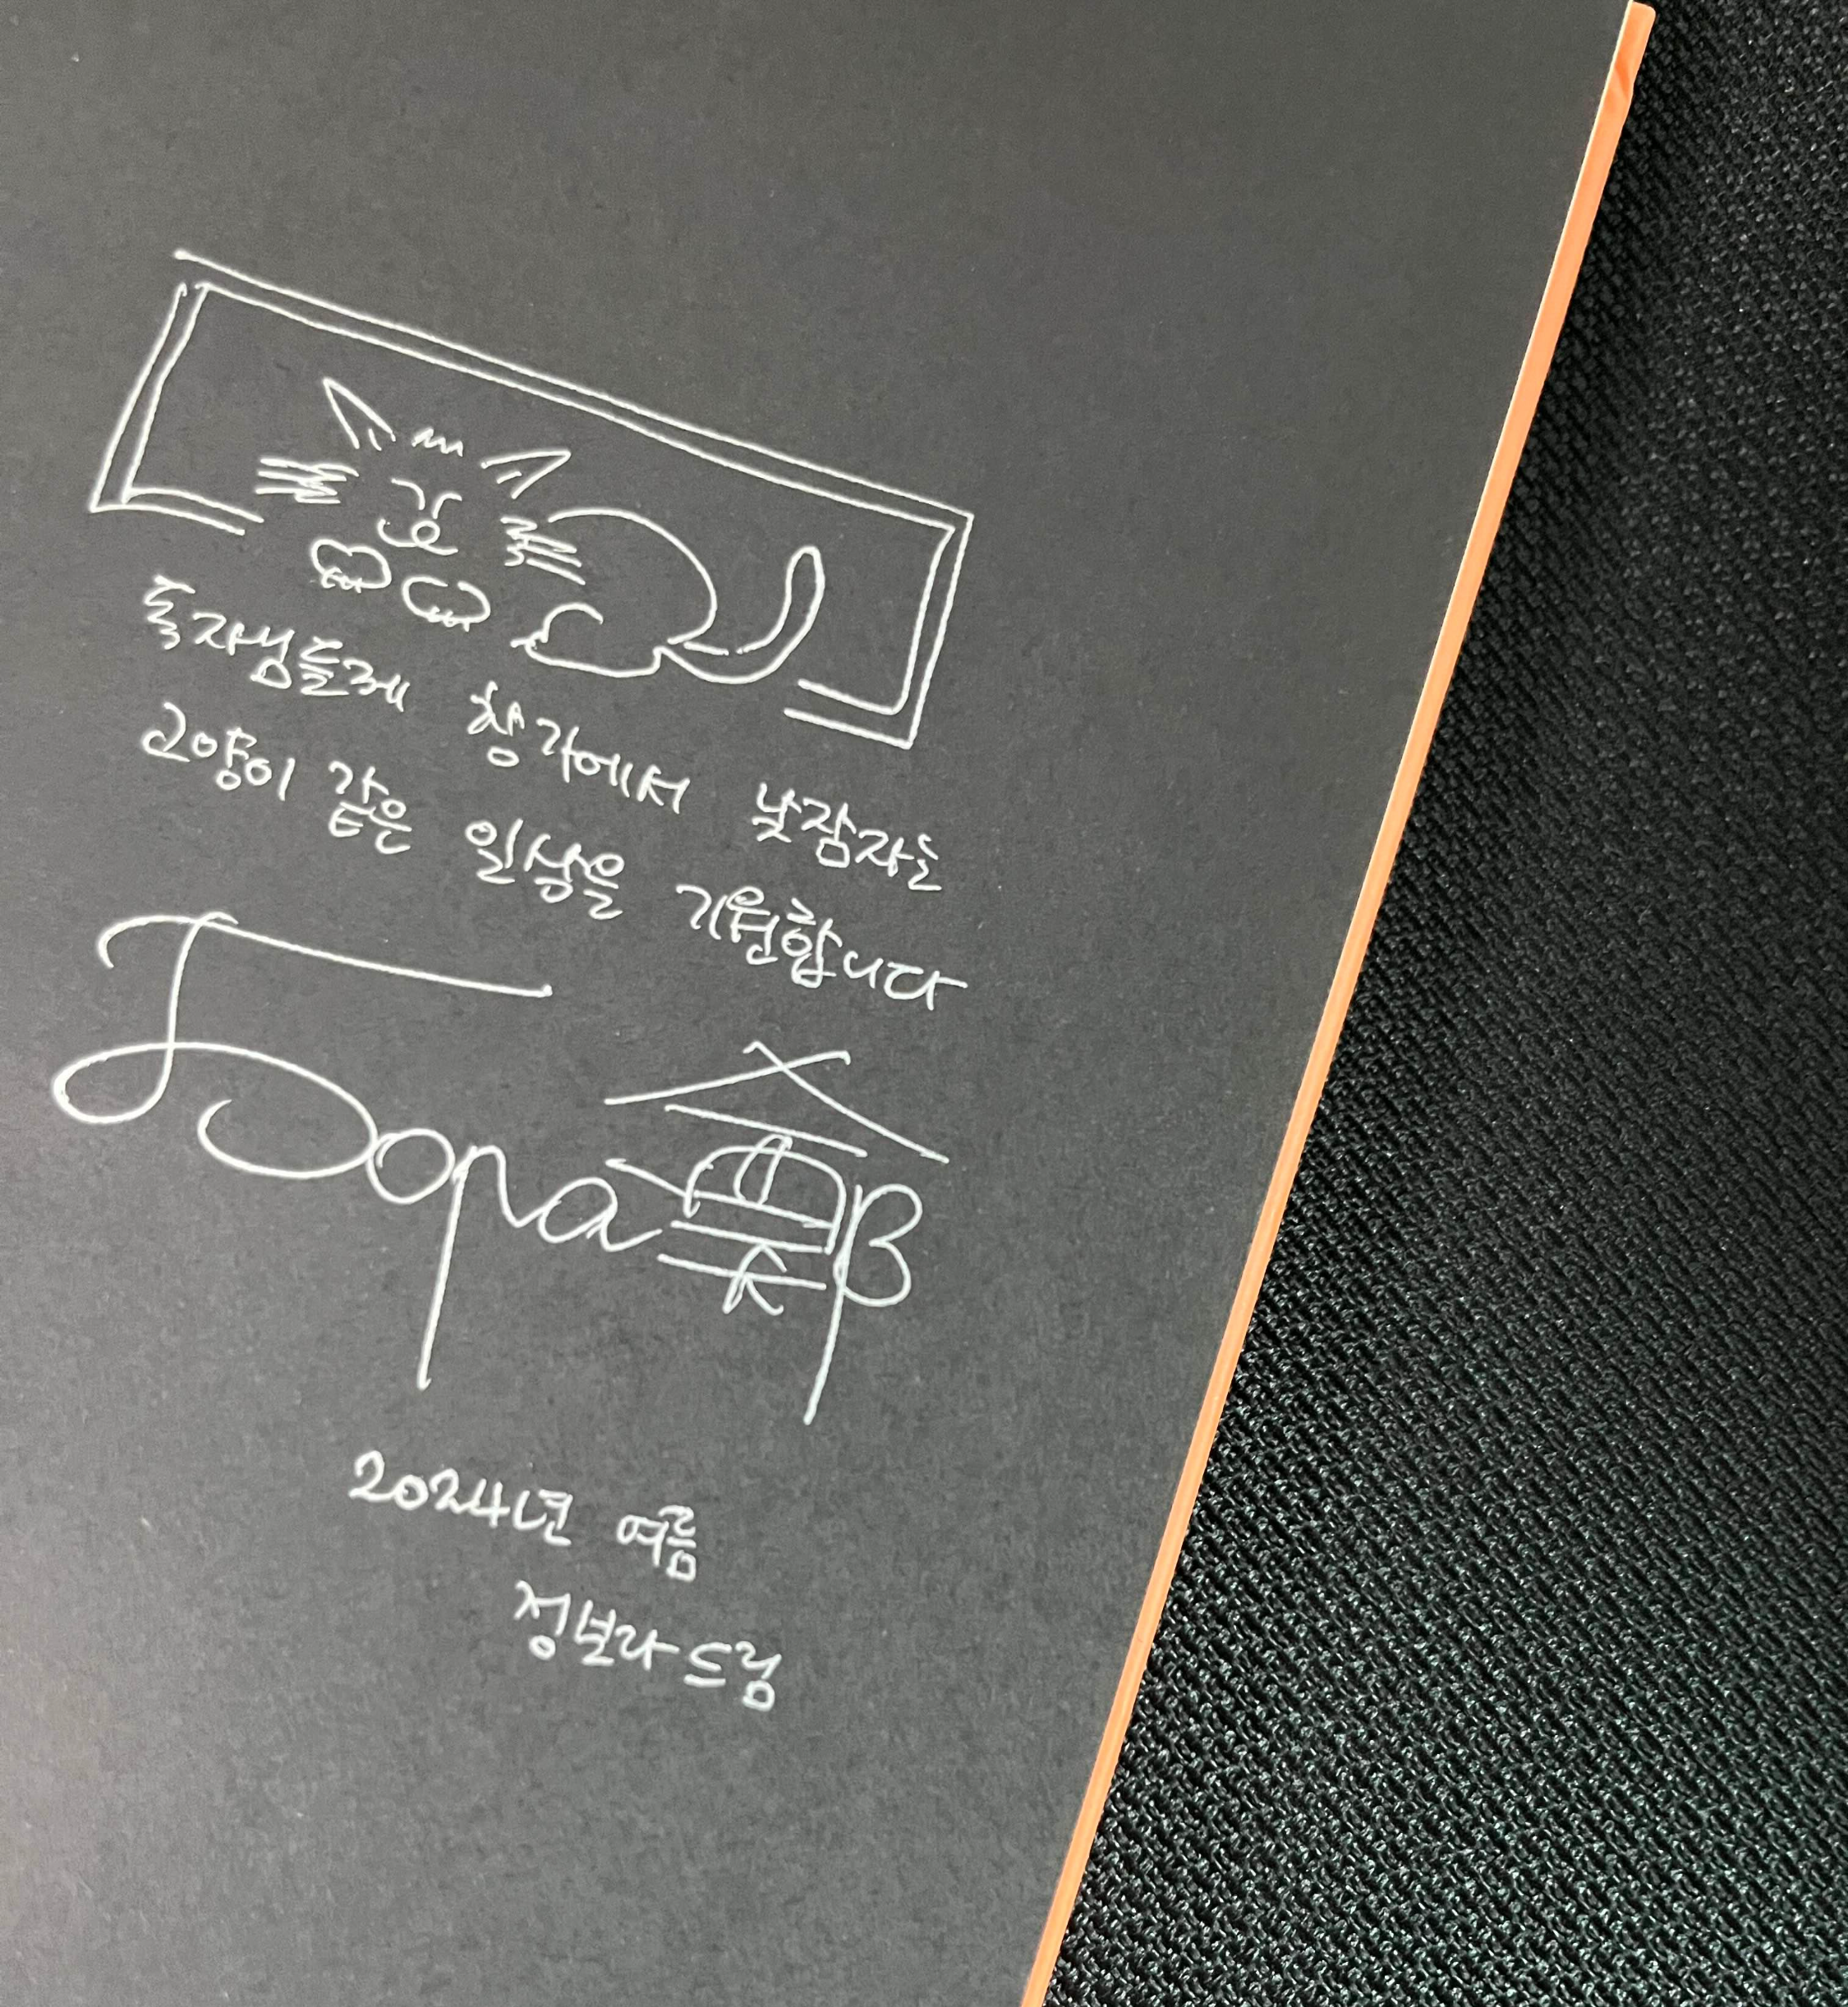 독자님들께 창가에서 낮잠자는
고양이 같은 일상을 기원합니다
2024년 여름
정보라 드림